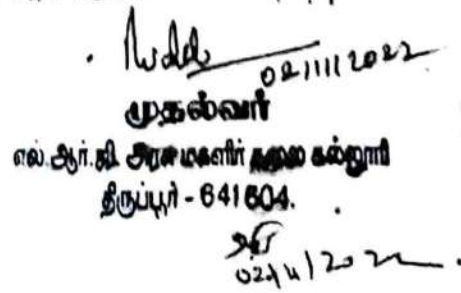 02/11/2022
முதல்வர்
எல்.ஆர்.ஜி. அரசு மகளிர் கலை கல்லூரி
திருப்பூர் - 641604.
02/11/2022